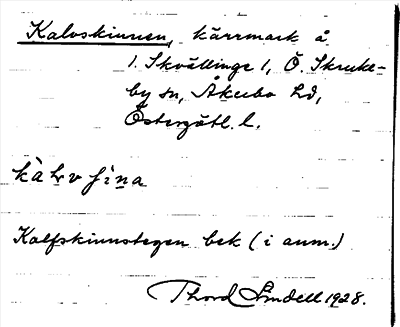 Kalvskinnen, kärrmark å
1. Skvällinge 1, Ö. Skruke-
by sn, Åkerbo hd,
Östergötl. l.
kàlvſìna
Kalfskinnstegen bek (i anm.)
Thord Lindell 1928.